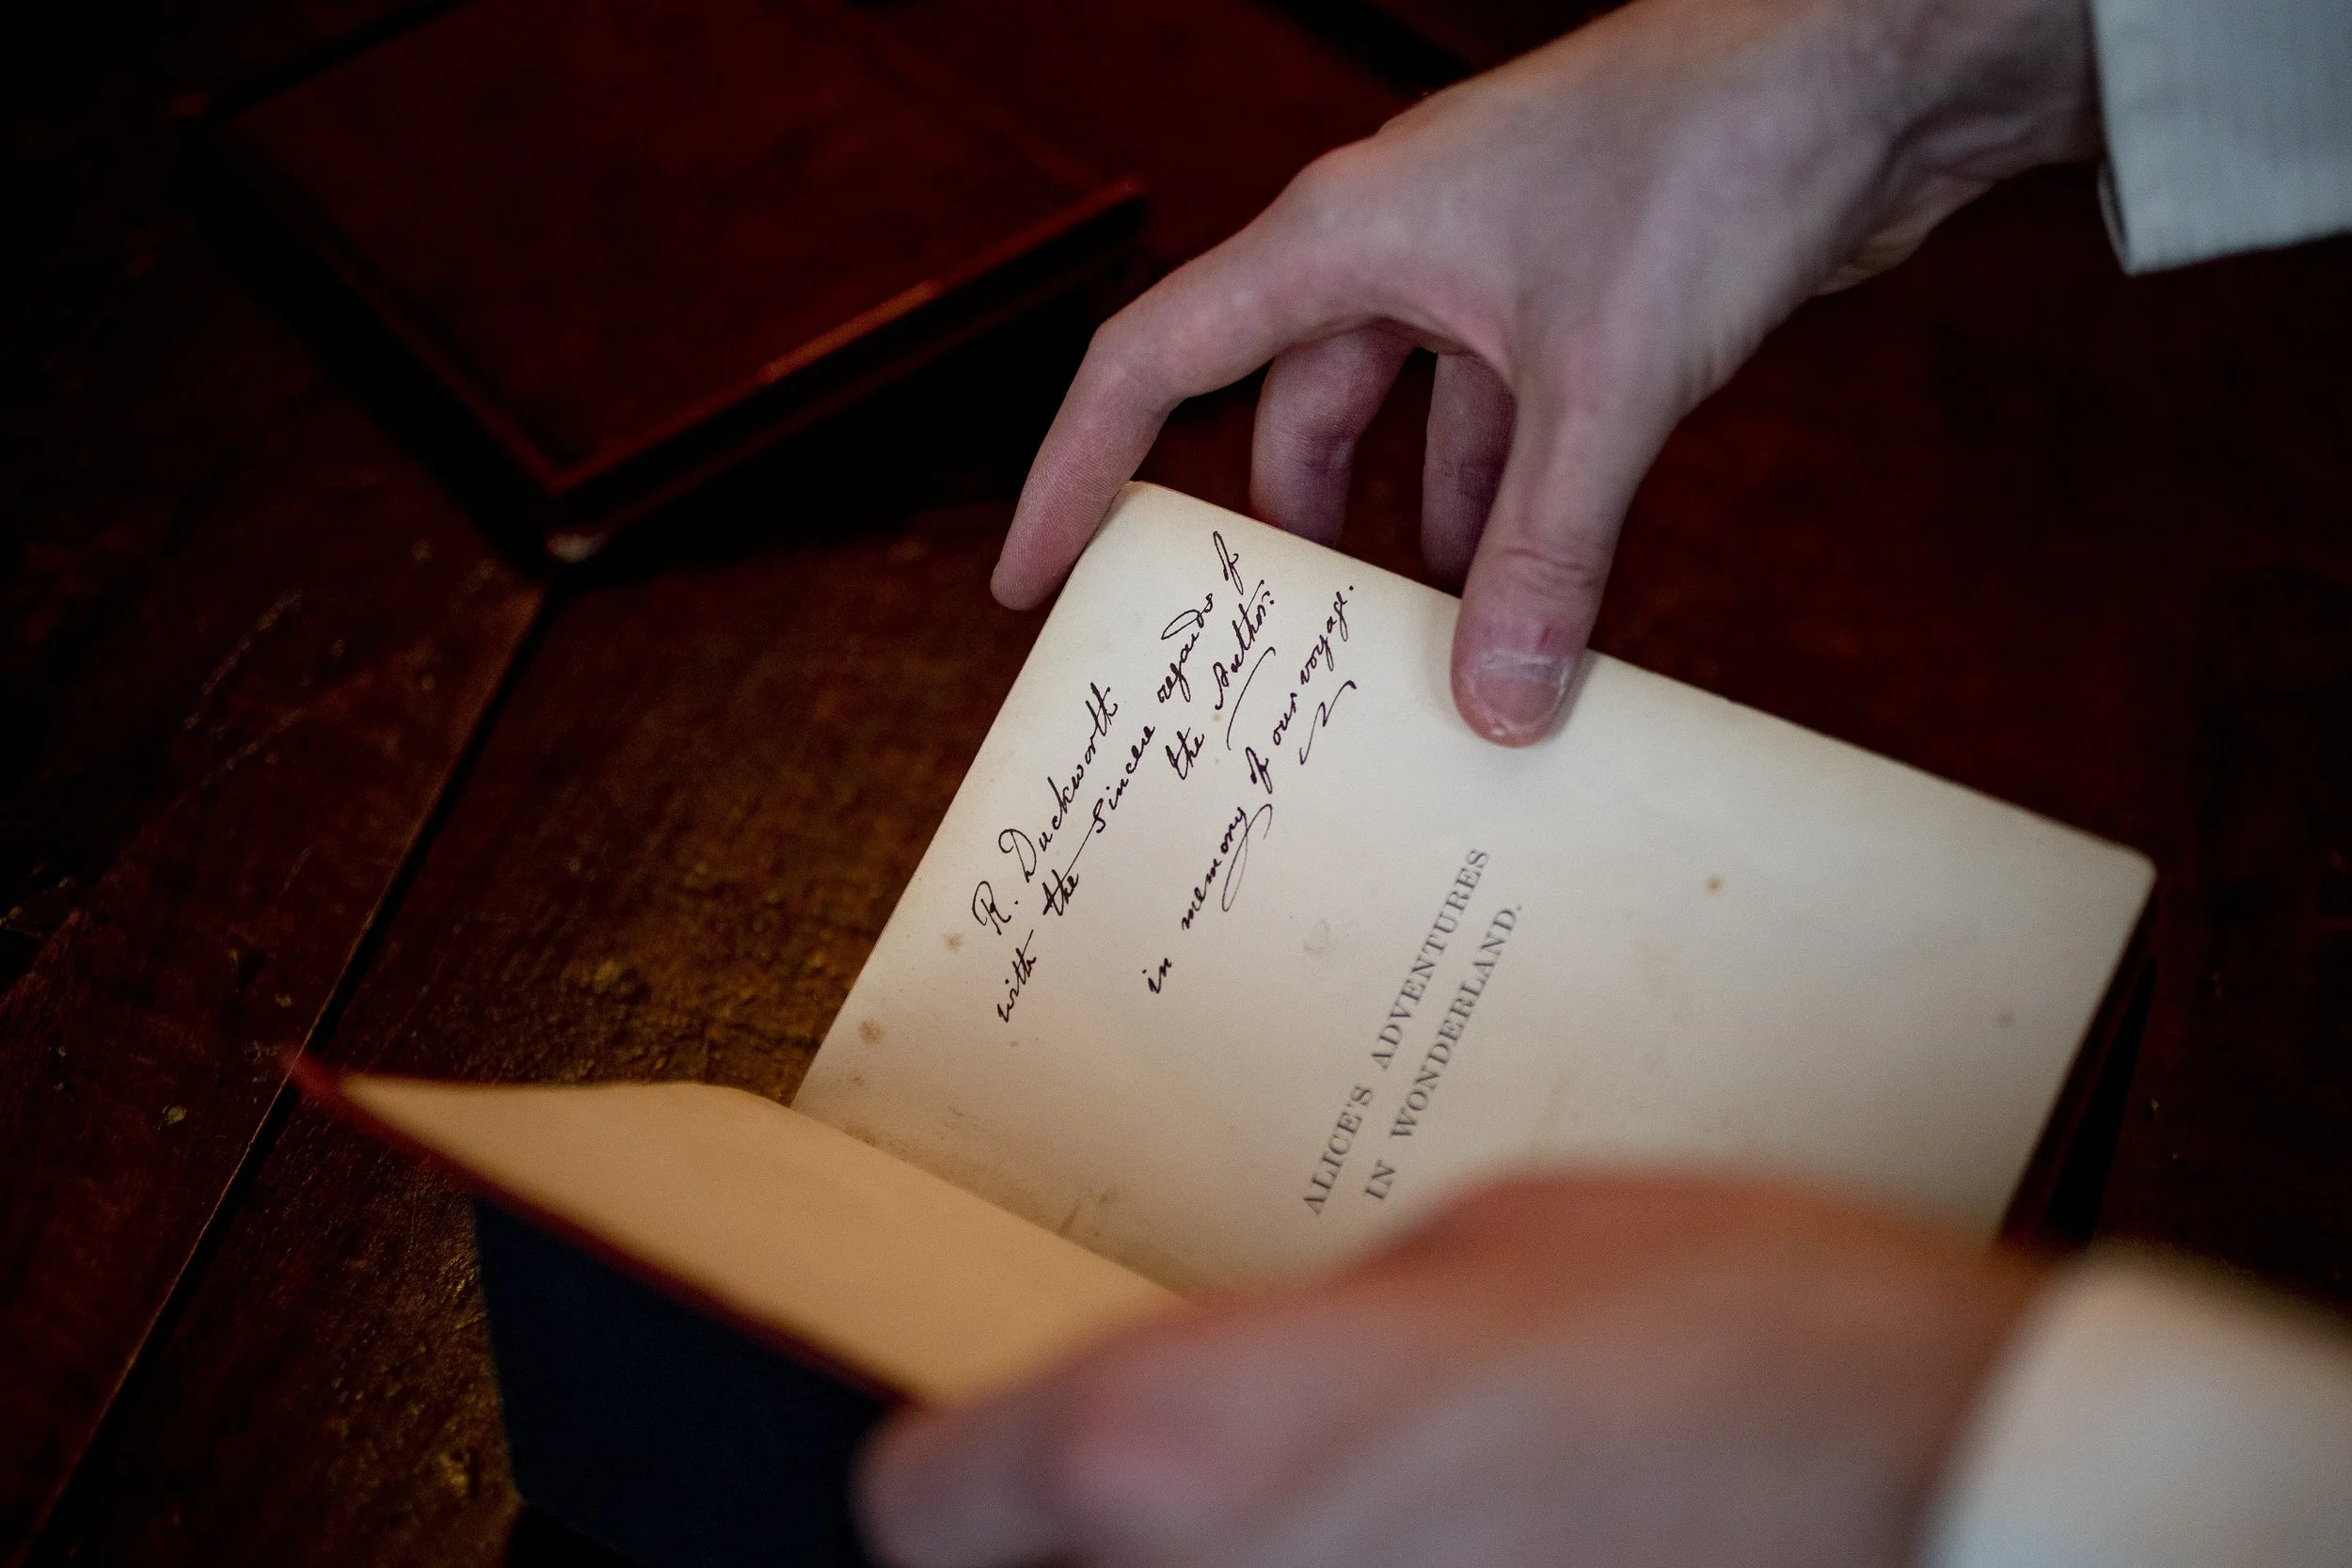 R. Duckworth
with the sincere regards of
the Author.
in memory of our voyage.
ALICE'S ADVENTURES
IN WONDERLAND.